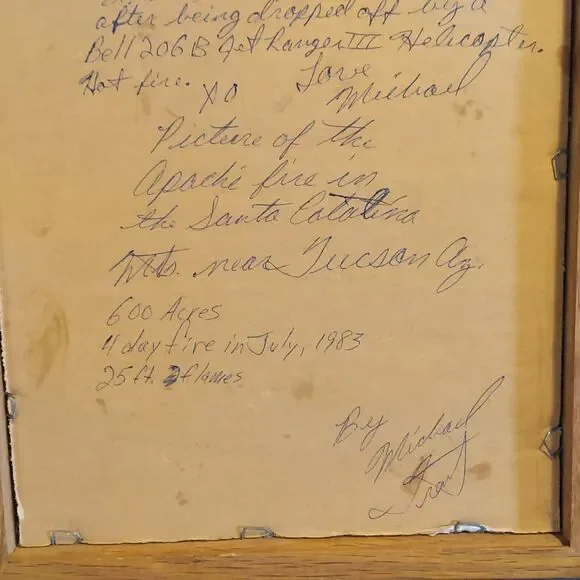 after being dropped off by a
Bell 206B Jet Ranger III Helicopter.
Hot fire.
XO
Love
Michael
Picture of the
Apache fire in
the Santa Catalina
Mts. near Tucson Az.
600 Acres
4 day fire in July, 1983
25 ft. flames
By
Michael